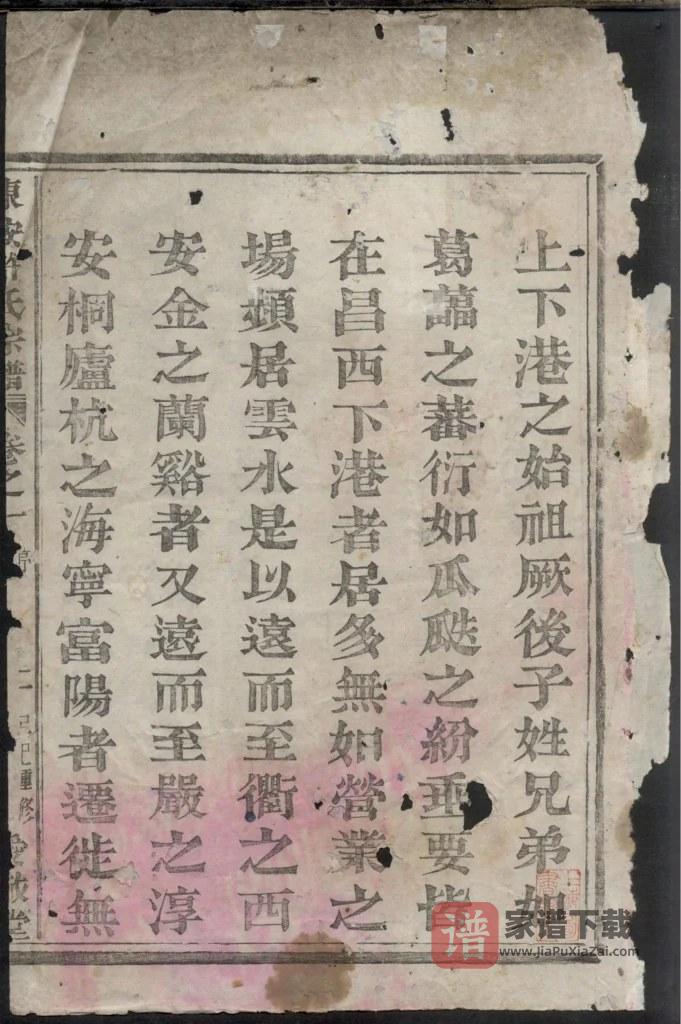 上下港之始祖厥後子姓兄弟如
葛藟之蕃衍如瓜瓞之紛垂要皆
在昌西下港者居多無如營業之
場頻居雲水是以遠而至衢之西
安金之蘭谿者又遠而至嚴之淳
安桐廬杭之海寧富陽者遷徙無
東安許氏宗譜 卷之一 二 重修 愛敬堂
谱 家谱下载
www.JiaPuXiaZai.com